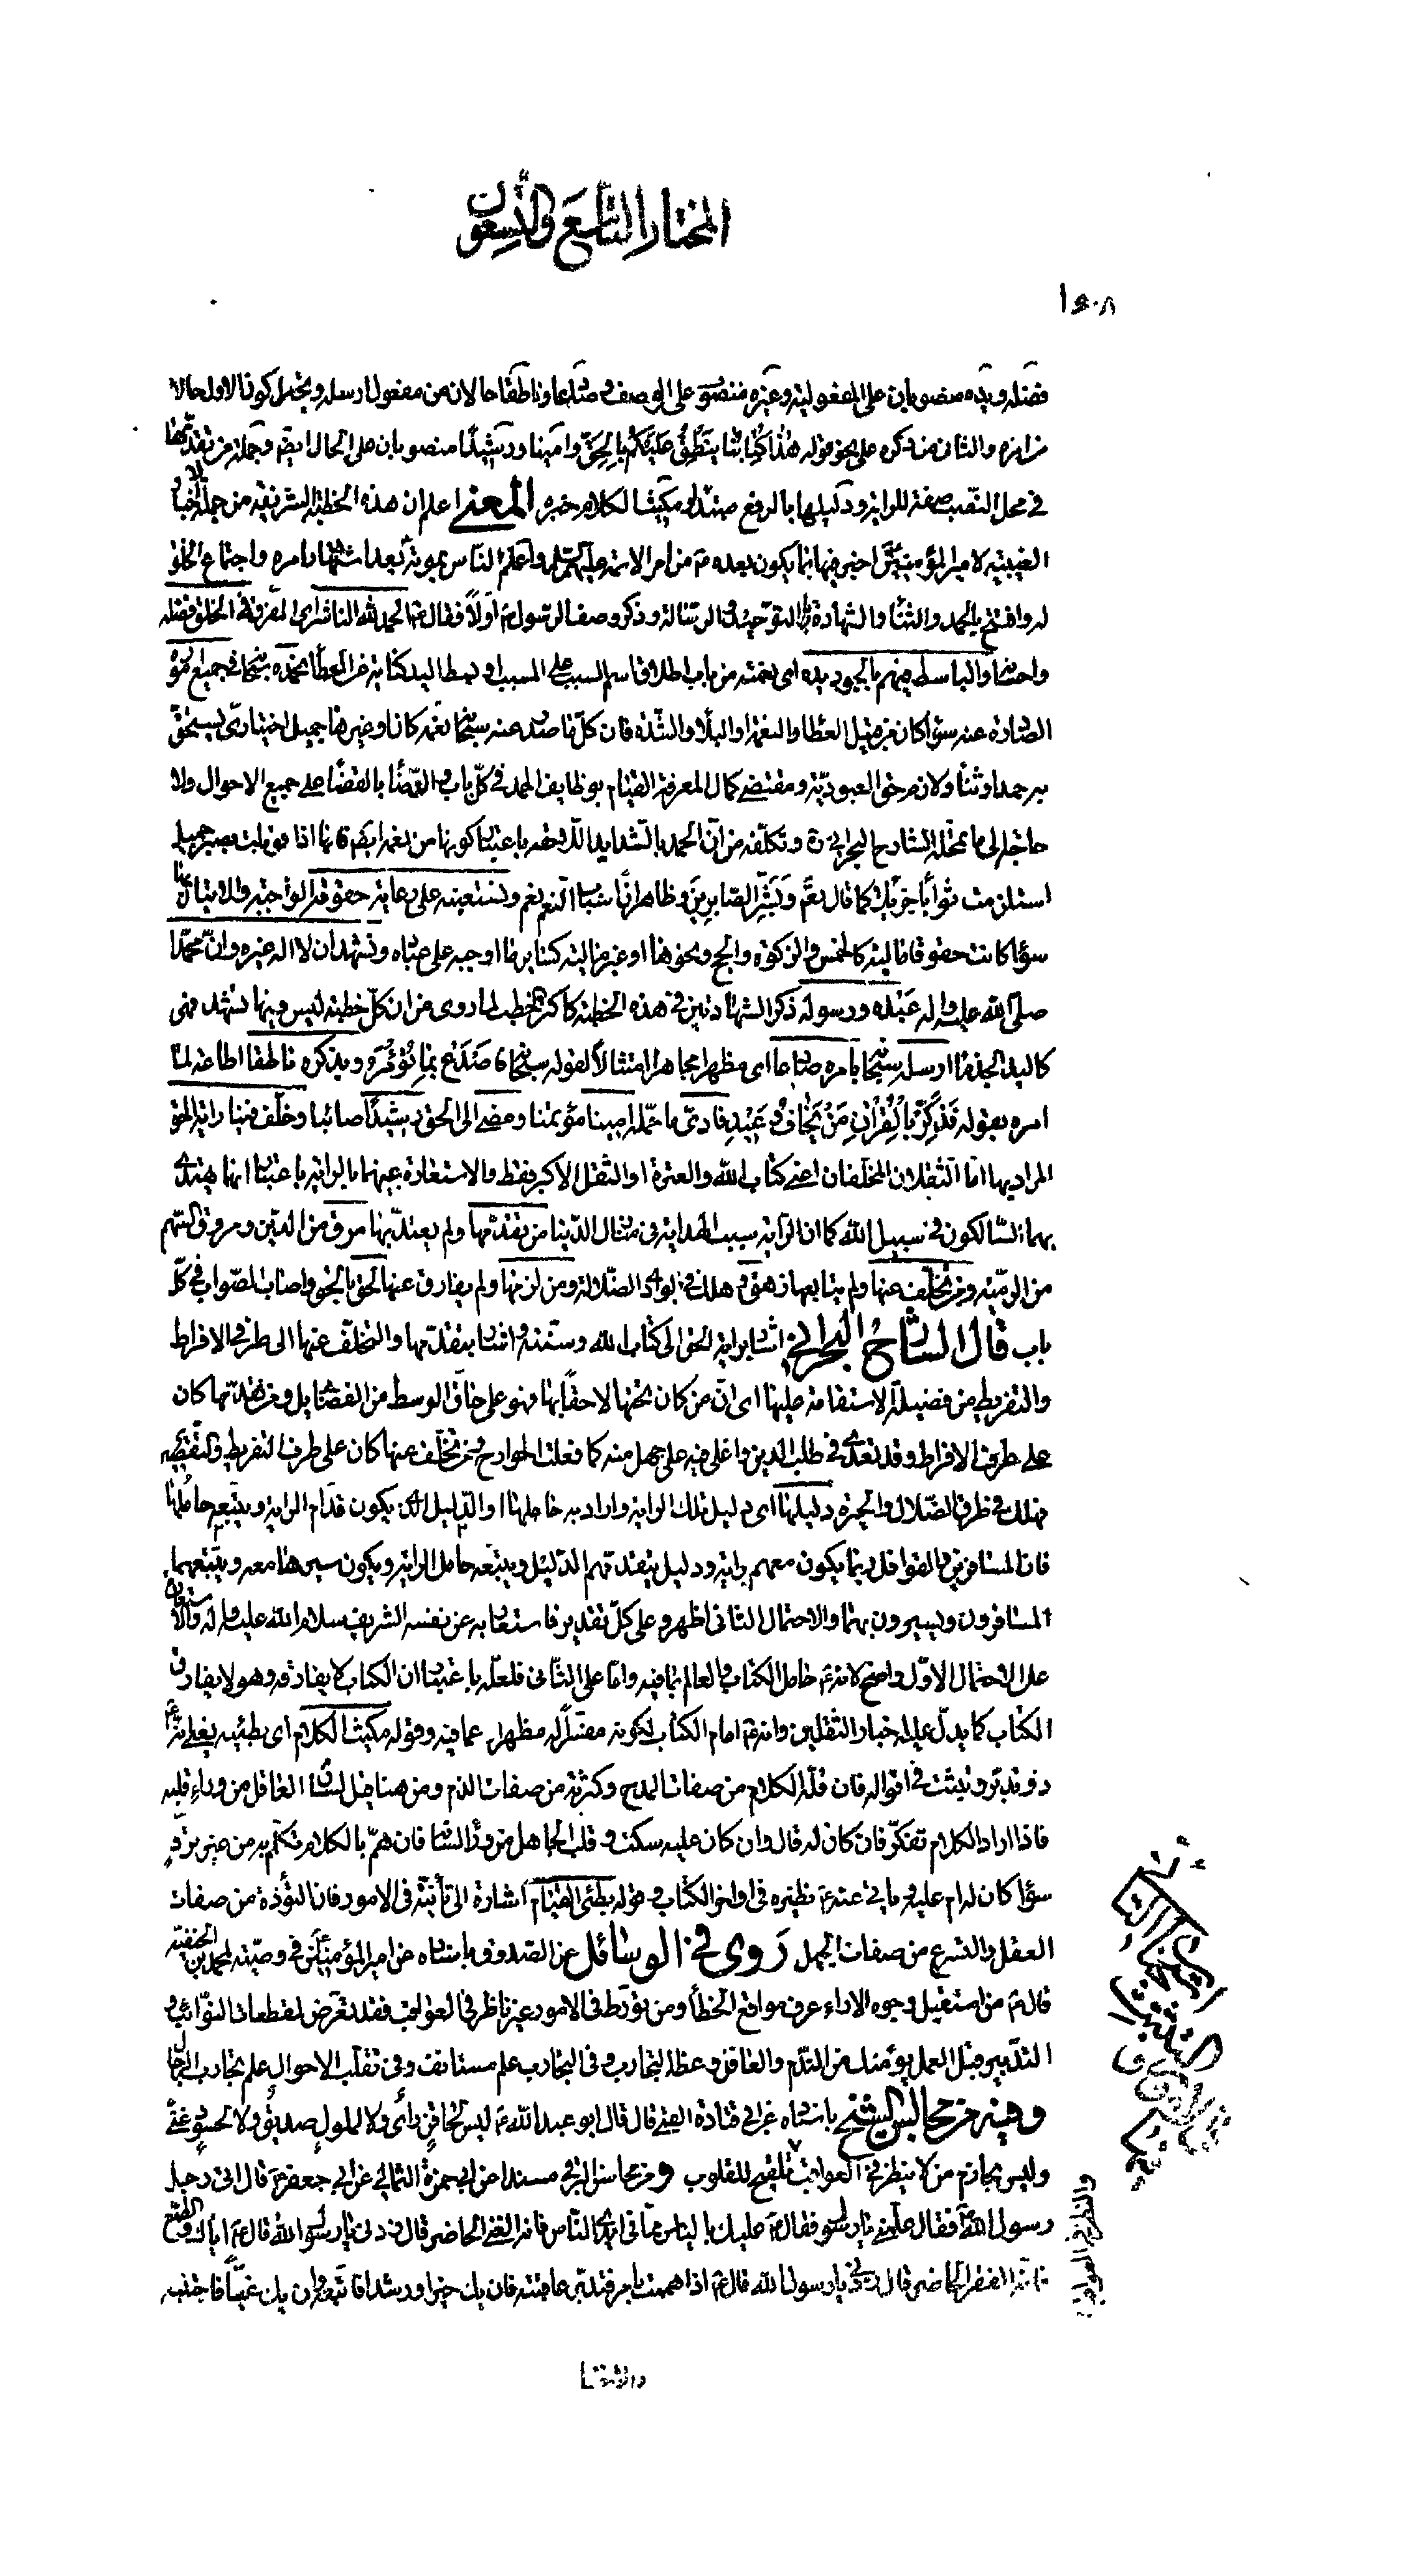 المختار التاسع والتسعون
فضله ويده منصوبان على المفعولية وغيره منصوب على الوصف وصادعا وناطقا حالان من مفعول ارسله ويحتمل كون الاول حالا
من امره والثاني من ذكره على نحو قوله هذا كتابنا ينطق عليكم بالحق وامينا ورشيدا منصوبان على الحال ايضا وجملة من تقدمها
في محل النصب صفة للراية ودليلها بالرفع مبتدأ ومكيث الكلام خبره المعنى اعلم ان هذه الخطبة الشريفة من جملة الاخبار
الغيبية لامير المؤمنين اخبر فيها بما يكون بعده من امر الائمة عليهم السلم واعلم الناس بموته بعد اشتهار امره واجتماع الخلق
له وافتتح بالحمد والثناء والشهادة بالتوحيد والرسالة وذكر وصف الرسول اولا فقال الحمد لله الناشر اي المفرق في الخلق فضله
واحسانه والباسط فيهم بالجود يده اي نعمته من باب اطلاق اسم السبب على المسبب او بسط اليد كناية عن العطاء نحمده سبحانه في جميع اموره
الصادرة عنه سواء كان من قبيل العطاء والنعمة او البلاء والشدة فان كل ما صدر عنه سبحانه نعمة كانا وغيرها جميل اختياري يستحق
به حمدا وثناء ولان من حق العبودية ومقتضى كمال المعرفة القيام بوظايف الحمد في كل باب والرضا بالقضاء على جميع الاحوال ولا
حاجة الى ما تمحله الشارح البحراني ره وتكلفه من ان الحمد بالشدايد اللاحقة باعتبار كونها من نعمه ايضا فانها اذا قوبلت بصبر جميل
استلزمت ثوابا جزيلا كما قال تعالى وبشر الصابرين وظاهر ان اسباب النعم نعم ونستعينه على رعاية حقوقه الواجبة
سواء كانت حقوقا مالية كالخمس والزكوة والحج ونحوها او غير مالية كسائر ما اوجبه على عباده ونشهد ان لا اله غيره وان محمدا
صلى الله عليه واله عبده ورسوله ذكر الشهادتين في هذه الخطبة كاكثر الخطب لما روي من ان كل خطبة ليس فيها تشهد فهي
كاليد الجذماء ارسله سبحانه بامره صادعا اي مظهرا مجاهرا امتثالا لقوله سبحانه فاصدع بما تؤمر وبذكره ناطقا اطاعة لما
امره بقوله فذكر بالقران من يخاف وعيد فادى ما حمله امينا مؤتمنا ومضى الى الحق رشيدا صائبا وخلف فينا راية الحق
المراد بها اما الثقلان المخلفان اعني كتاب الله والعترة او الثقل الاكبر فقط والاستعارة عنهما بالراية باعتبار انها يهتدى
بهما السالكون في سبيل الله كما ان الراية سبب الهداية في مثال الدنيا من تقدمها ولم يعتد بها مرق من الدين ومروق السهم
من الرمية ومن تخلف عنها ولم يتابعها زهق وهلك في بوادي الضلالة ومن لزمها ولم يفارق عنها لحق بالحق واصاب الصواب في كل
باب قال الشارح البحراني اشار براية الحق الى كتاب الله وسنته واشار بتقدمها والتخلف عنها الى طرفي الافراط
والتفريط من فضيلة الاستقامة عليها اي ان من كان تحتها لاحقا بها فهو على حاق الوسط من الفضايل ومن تقدمها كان
على طرف الافراط وقد تعدى في طلب الدين واغلى فيه على جهل منه كما فعلت الخوارج ومن تخلف عنها كان على طرف التفريط والتقصير
فهلك في طرق الضلال والحيرة دليلها اي دليل تلك الراية واراد به حاملها او الدليل الذي يكون قدام الراية ويتبعه حاملها
فان المسافرين والقوافل ربما يكون معهم راية ودليل يتقدمهم الدليل ويتبعه حامل الراية ويكون سيرها معه ويتبعهما
المسافرون ويسيرون بهما والاحتمال الثاني اظهر وعلى كل تقدير فاستعاره به عن نفسه الشريف سلام الله عليه واله والاستعارة
على الاحتمال الاول واضح لانه حامل الكتاب والعالم بما فيه واما على الثاني فلعله باعتبار ان الكتاب لا يفارقه وهو لا يفارق
الكتاب كما يدل عليه اخبار الثقلين وانه امام الكتاب لكونه مفسرا له مظهرا عما فيه وقوله مكيث الكلام اي بطيئه يعني انه
ذو تدبر وتثبت في اقواله فان قلة الكلام من صفات المدح وكثرته من صفات الذم ومن هنا قيل لسان العاقل من وراء قلبه
فاذا اراد الكلام تفكر فان كان له قال وان كان عليه سكت وقلب الجاهل من وراء لسانه فان هم بالكلام تكلم به من غير ترو
سواء كان له ام عليه ويأتي عنه نظيره في اواخر الكتاب وقوله بطيء القيام اشارة الى تأنيه في الامور فان التؤدة من صفات
العقل والتسرع من صفات الجهل روى في الوسائل عن الصدوق باسناده عن امير المؤمنين في وصيته لمحمد بن الحنفية
قال من استقبل وجوه الاراء عرف مواقع الخطأ ومن تورط في الامور غير ناظر في العواقب فقد تعرض لمقطعات النوائب و
التدبير قبل العمل يؤمنك من الندم والعاقل من وعظه التجارب وفي التجارب علم مستانف وفي تقلب الاحوال علم تجارب الرجال
وفيه من مجالس الشيخ باسناده عن ابي قتادة القمي قال قال ابو عبد الله ليس لحاقن رأي ولا لملول صديق ولا لحسود غنى
وليس بحازم من لا ينظر في العواقب تلقيح للقلوب ومن محاسن البرقي مسندا عن ابي حمزة الثمالي عن ابي جعفر قال اتى رجل
رسول الله فقال علمني يا رسول الله فقال عليك بالياس مما في ايدي الناس فانه الغنى الحاضر قال زدني يا رسول الله قال اياك والطمع
فانه الفقر الحاضر قال زدني يا رسول الله قال اذا هممت بامر فتدبر عاقبته فان يك خيرا ورشدا فاتبعه وان يك غيا فاجتنبه
والنظر في العواقب